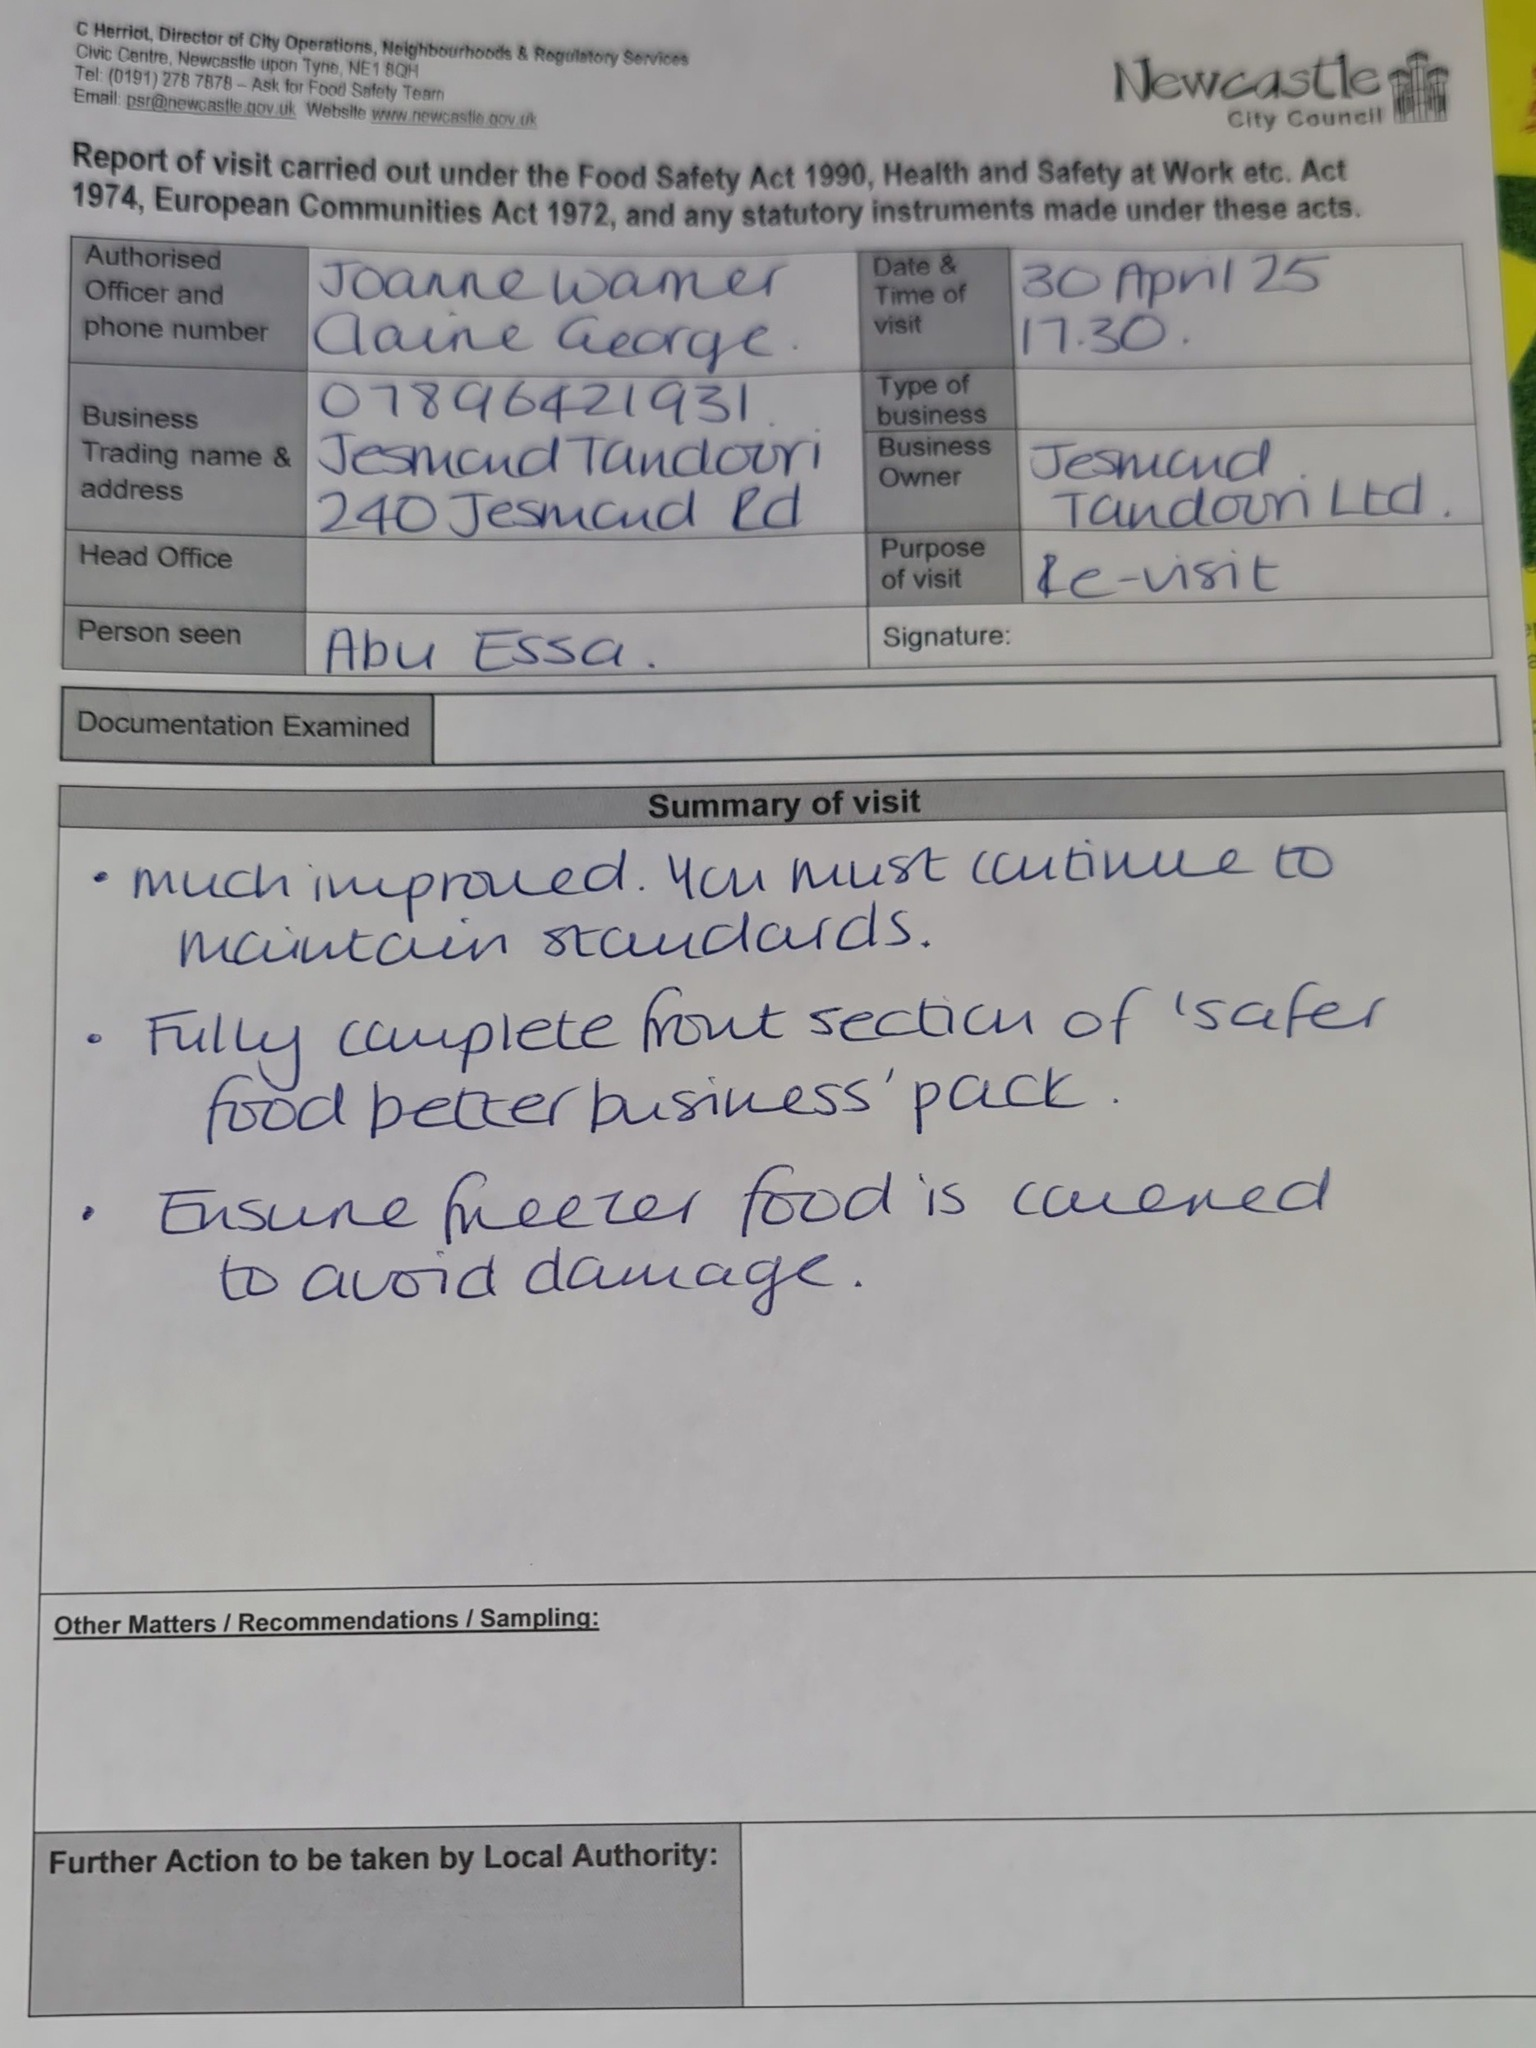 C Herriot, Director of City Operations, Neighbourhoods & Regulatory Services
Civic Centre, Newcastle upon Tyne, NE1 8QH
Tel: (0191) 278 7878 – Ask for Food Safety Team
Email: psr@newcastle.gov.uk Website www.newcastle.gov.uk
Newcastle
City Council
Report of visit carried out under the Food Safety Act 1990, Health and Safety at Work etc. Act
1974, European Communities Act 1972, and any statutory instruments made under these acts.
Authorised
Officer and
phone number
Joanne Warner
Claire George.
Date &
Time of
visit
30 April 25
17.30.
Business
Trading name &
address
07896421931.
Jesmond Tandoori
240 Jesmond Rd
Type of
business
Business
Owner
Jesmond
Tandoori Ltd.
Head Office
Purpose
of visit
Re-visit
Person seen
Abu Essa.
Signature:
Documentation Examined
Summary of visit
• much improved. You must continue to
maintain standards.
• Fully complete front section of 'safer
food better business' pack.
• Ensure freezer food is covered
to avoid damage.
Other Matters / Recommendations / Sampling:
Further Action to be taken by Local Authority: